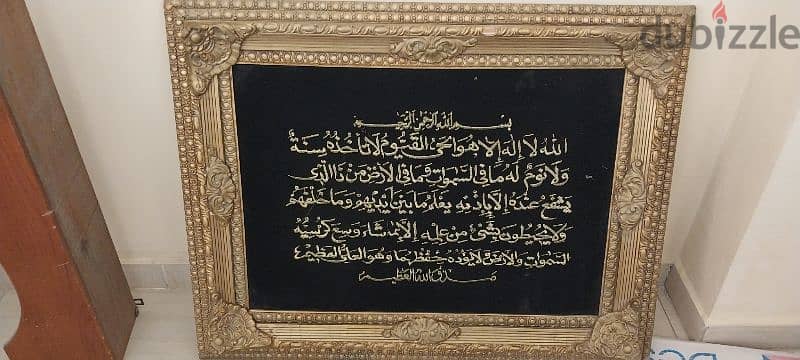 dubizzle
بسم الله الرحمن الرحيم
الله لا إله إلا هو الحي القيوم لا تأخذه سنة
ولا نوم له ما في السموات وما في الأرض من ذا الذي
يشفع عنده إلا بإذنه يعلم ما بين أيديهم وما خلفهم
ولا يحيطون بشئ من علمه إلا بما شاء وسع كرسيه
السموات والأرض ولا يؤده حفظهما وهو العلي العظيم
صدق الله العظيم